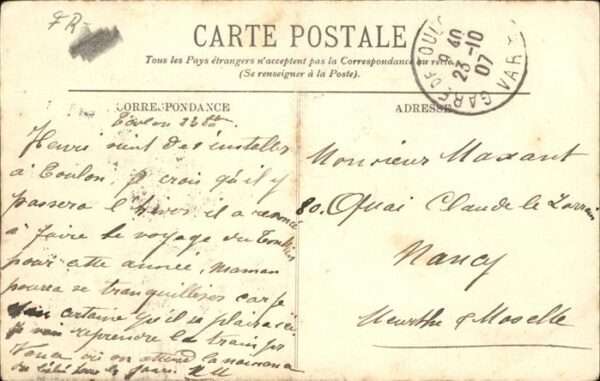 FR-
CARTE POSTALE
Tous les Pays étrangers n'acceptent pas la Correspondance au recto.
(Se renseigner à la Poste).
GARE DE TOULON
8 40
23-10
07
VAR
CORRESPONDANCE
ADRESSE
Toulon 23
Henri vient de s'installer
à Toulon, je crois qu'il y
passera l'hiver, il a renoncé
à faire le voyage du
pour cette année, Maman
pourra se tranquilliser car je
suis certaine qu'il se plaira ici
je vais reprendre le train pr
où on attend la
les jours
Monsieur Maxant
80. Quai Claude le Lorrain
Nancy
Meurthe & Moselle